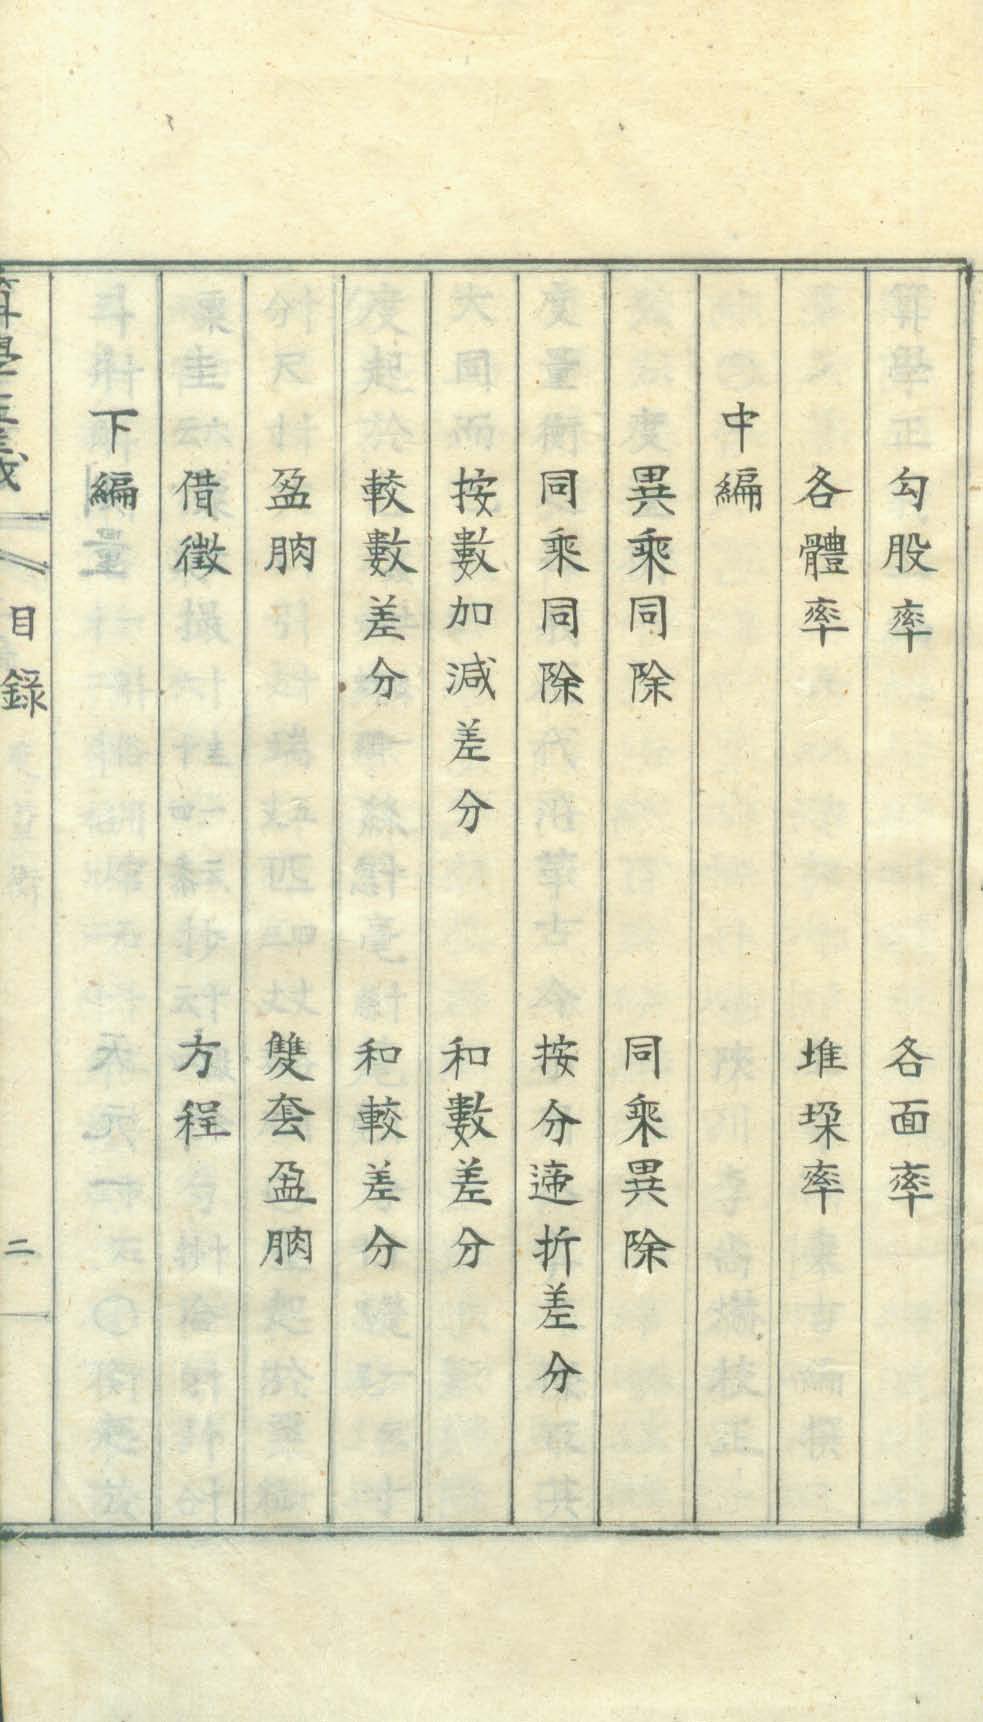 勾股率　各面率
各體率　堆垜率
中編
異乘同除　同乘異除
同乘同除　按分遞折差分
按數加減差分　和數差分
較數差分　和較差分
盈朒　雙套盈朒
借徵　方程
下編
算學正義　目錄　二